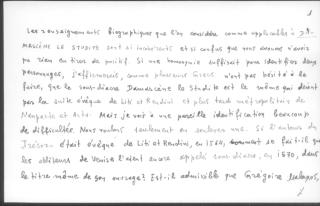 Les renseignements biographiques que l'on considère comme applicables à DA-
MASCÈNE LE STUDITE sont si incohérents et si confus que nous avouons n'avoir
pu rien en tirer de positif. Si une homonymie suffisait pour identifier deux
personnages, j'affirmerais, comme plusieurs Grecs n'ont pas hésité à le
faire, que le sous-diacre Damascène le Studite est le même qui devint
par la suite évêque de Liti et Rendini et plus tard métropolitain de
Naupacte et Arta. Mais je vois à une pareille identification beaucoup
de difficultés. Nous voulons seulement en soulever une. Si l'auteur du
Trésor était évêque de Liti et Rendini, en 1564, comment se fait-il que
les éditeurs de Venise l'aient encore appelé sous-diacre, en 1570, dans
le titre même de son ouvrage? Est-il admissible que Grégoire